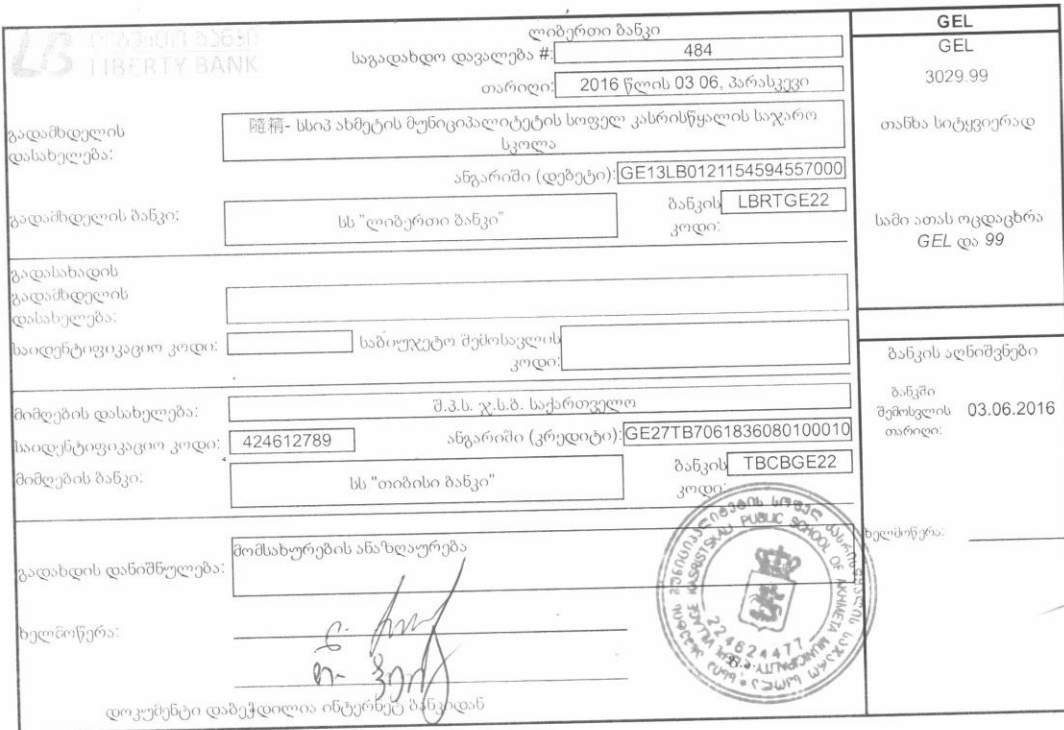 ლიბერთი ბანკი
LB ლიბერთი ბანკი
LIBERTY BANK
საგადახდო დავალება #: 484
თარიღი: 2016 წლის 03 06, პარასკევი
გადამხდელის
დასახელება:
隨箱- სსიპ ახმეტის მუნიციპალიტეტის სოფელ კასრისწყალის საჯარო
სკოლა
ანგარიში (დებეტი): GE13LB0121154594557000
გადამხდელის ბანკი: სს "ლიბერთი ბანკი" ბანკის კოდი: LBRTGE22
გადასახადის
გადამხდელის
დასახელება:
საიდენტიფიკაციო კოდი: საბიუჯეტო შემოსავლის
კოდი:
მიმღების დასახელება: შ.პ.ს. ჯ.ს.ბ. საქართველო
საიდენტიფიკაციო კოდი: 424612789 ანგარიში (კრედიტი): GE27TB7061836080100010
მიმღების ბანკი: სს "თიბისი ბანკი" ბანკის კოდი: TBCBGE22
გადახდის დანიშნულება: მომსახურების ანაზღაურება
ხელმოწერა:
დოკუმენტი დაბეჭდილია ინტერნეტ ბანკიდან
GEL
GEL
3029.99
თანხა სიტყვიერად
სამი ათას ოცდაცხრა
GEL და 99
ბანკის აღნიშვნები
ბანკში
შემოსვლის 03.06.2016
თარიღი:
ხელმოწერა:
PUBLIC SCHOOL OF AKHMETA MUNICIPALITY
VILLAGE
224624477